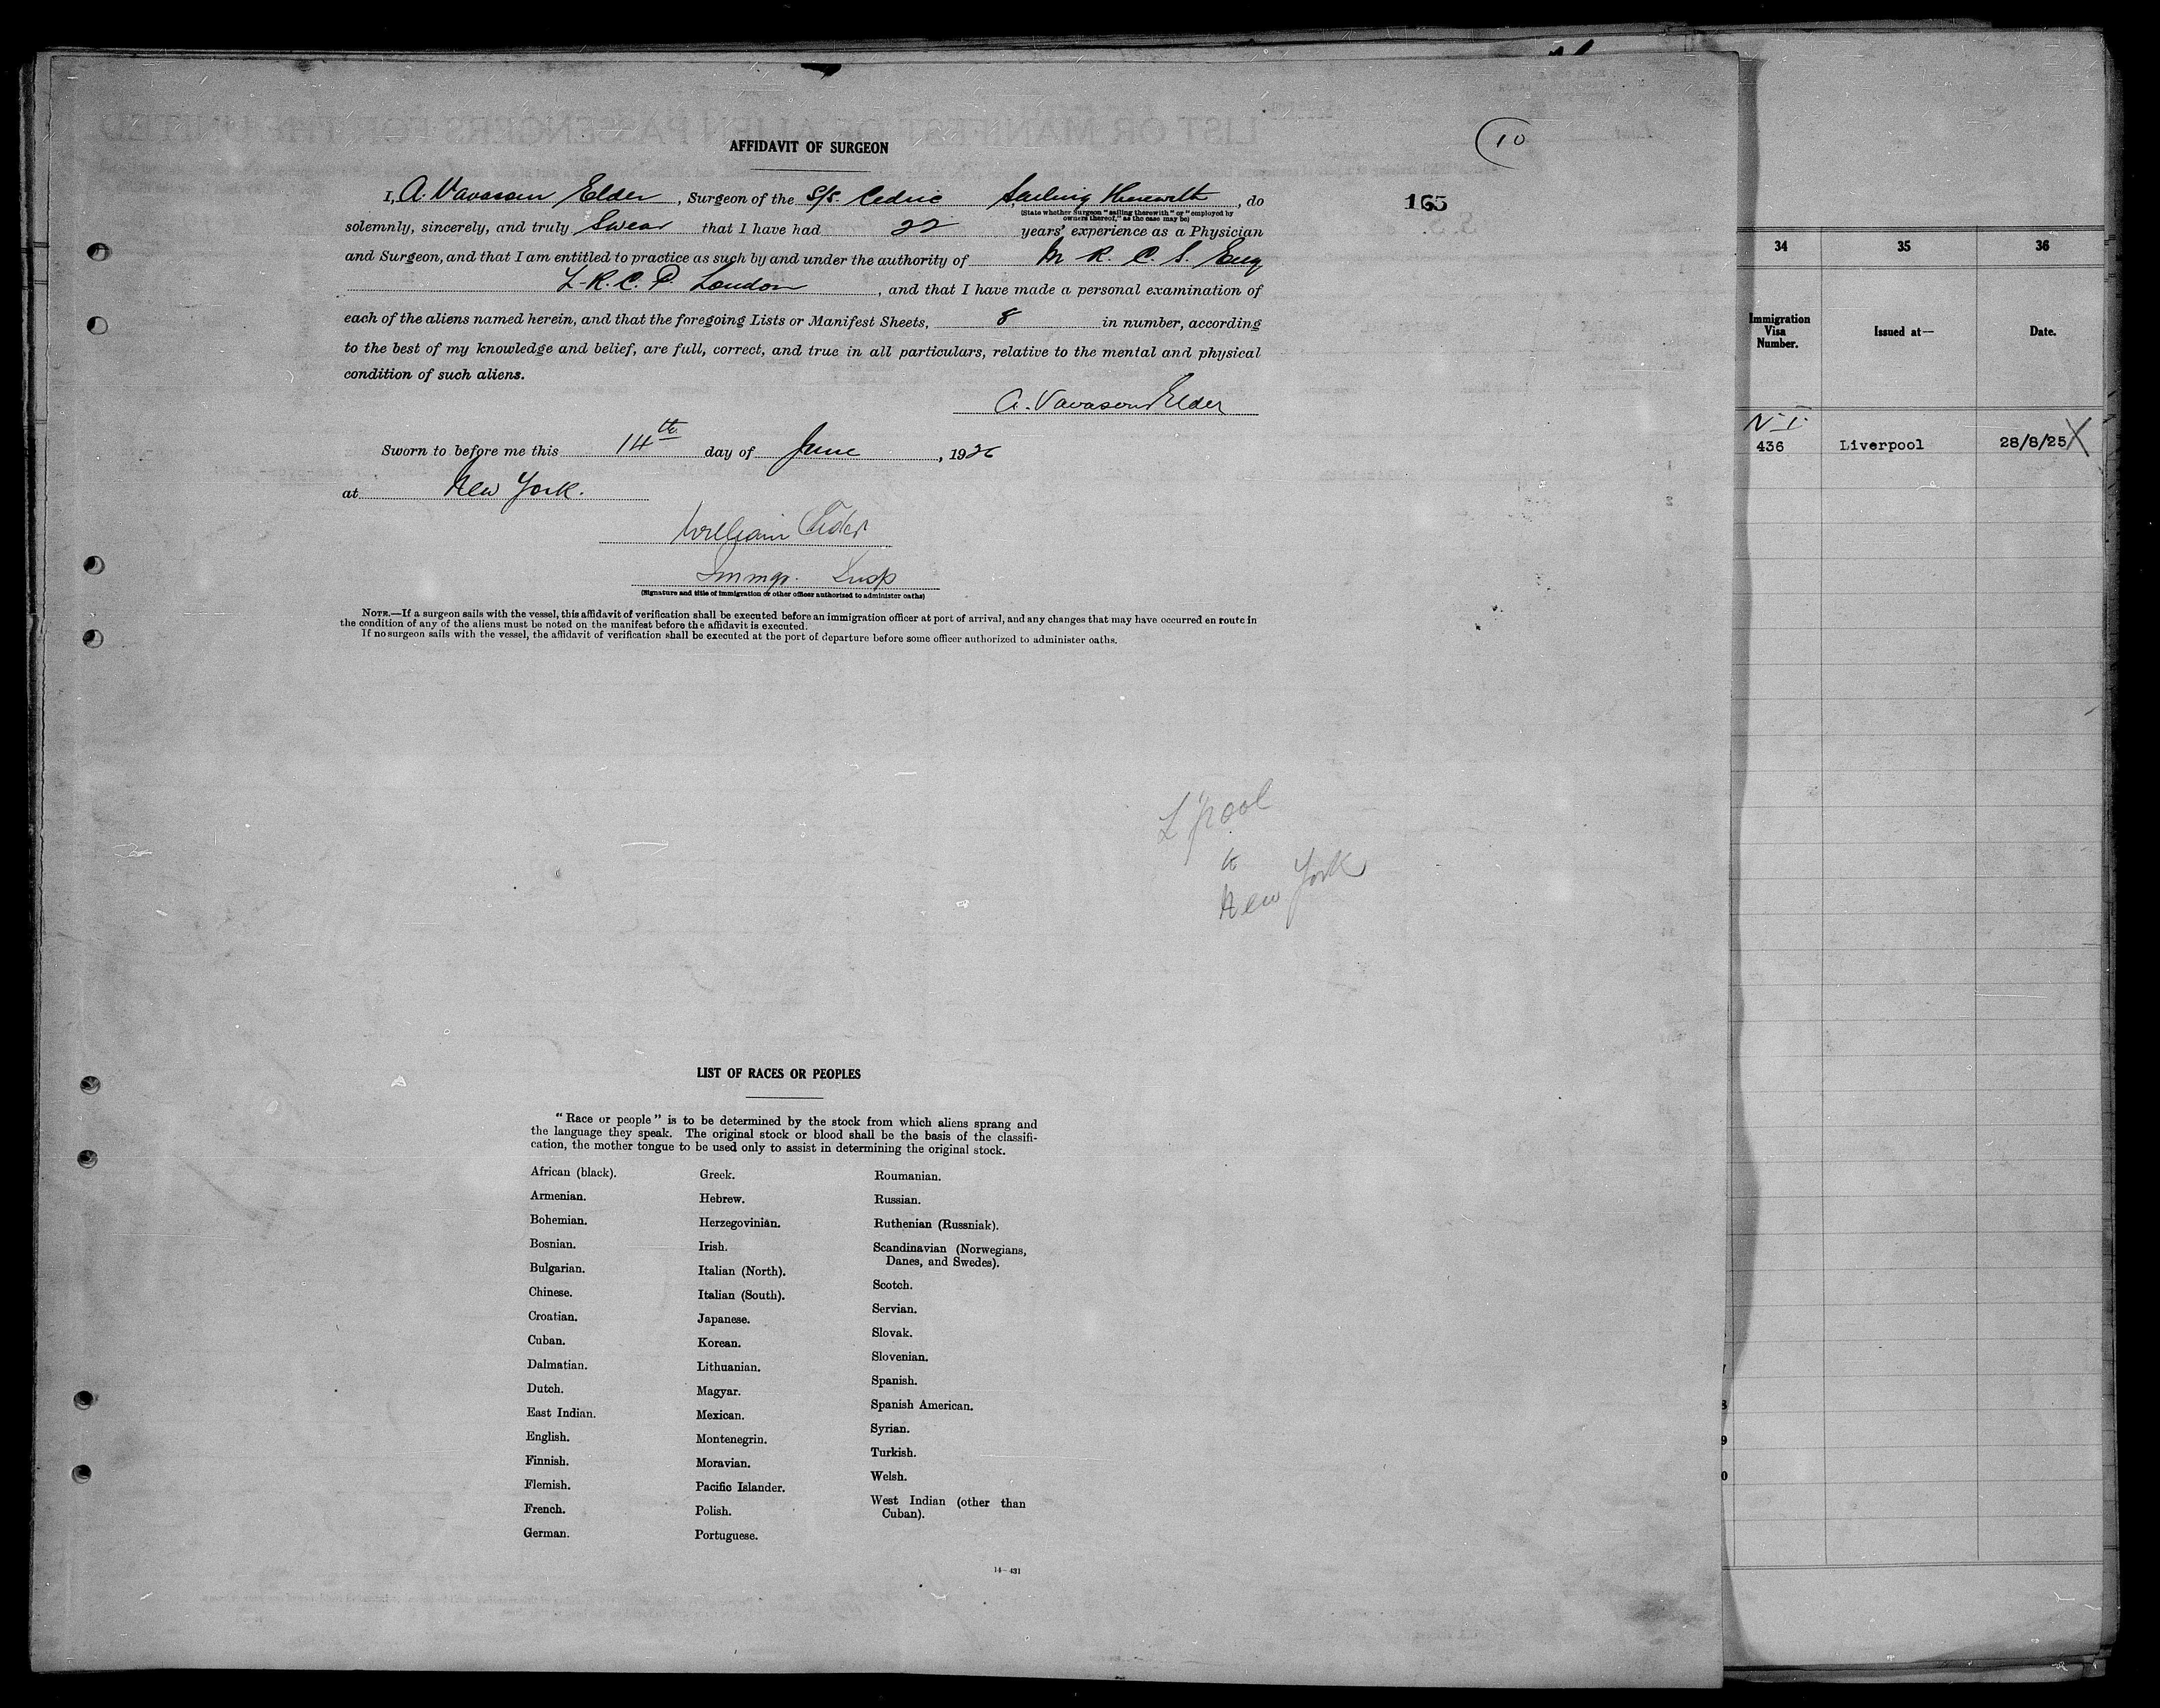 10
AFFIDAVIT OF SURGEON
165
I, A. Vavasour Elder, Surgeon of the S/S. Cedric Sailing Therewith, do
(State whether Surgeon "sailing therewith" or "employed by
owners thereof," as the case may be)
solemnly, sincerely, and truly Swear that I have had 22 years' experience as a Physician
and Surgeon, and that I am entitled to practice as such by and under the authority of M R. C. S. Eng
L.R.C.P. London, and that I have made a personal examination of
each of the aliens named herein, and that the foregoing Lists or Manifest Sheets, 8 in number, according
to the best of my knowledge and belief, are full, correct, and true in all particulars, relative to the mental and physical
condition of such aliens.
A. Vavasour Elder
Sworn to before me this 14th day of June, 1926
at New York.
William
Immgr. Insp
(Signature and title of immigration or other officer authorized to administer oaths)
NOTE.—If a surgeon sails with the vessel, this affidavit of verification shall be executed before an immigration officer at port of arrival, and any changes that may have occurred en route in
the condition of any of the aliens must be noted on the manifest before the affidavit is executed.
If no surgeon sails with the vessel, the affidavit of verification shall be executed at the port of departure before some officer authorized to administer oaths.
L'pool
to
New York
LIST OF RACES OR PEOPLES
"Race or people" is to be determined by the stock from which aliens sprang and
the language they speak. The original stock or blood shall be the basis of the classifi-
cation, the mother tongue to be used only to assist in determining the original stock.
African (black).
Armenian.
Bohemian.
Bosnian.
Bulgarian.
Chinese.
Croatian.
Cuban.
Dalmatian.
Dutch.
East Indian.
English.
Finnish.
Flemish.
French.
German.
Greek.
Hebrew.
Herzegovinian.
Irish.
Italian (North).
Italian (South).
Japanese.
Korean.
Lithuanian.
Magyar.
Mexican.
Montenegrin.
Moravian.
Pacific Islander.
Polish.
Portuguese.
Roumanian.
Russian.
Ruthenian (Russniak).
Scandinavian (Norwegians,
Danes, and Swedes).
Scotch.
Servian.
Slovak.
Slovenian.
Spanish.
Spanish American.
Syrian.
Turkish.
Welsh.
West Indian (other than
Cuban).
14—431
34 35 36
Immigration
Visa
Number.
Issued at—
Date.
436 Liverpool 28/8/25 X